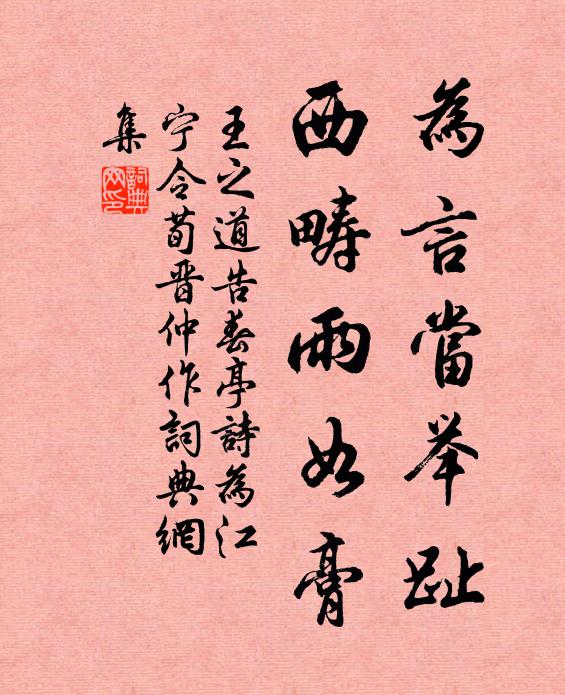 為言當举趾
西疇雨如膏
王之道告春亭詩為江
宁令荀晋仲作詞典網
集
詞典
网印